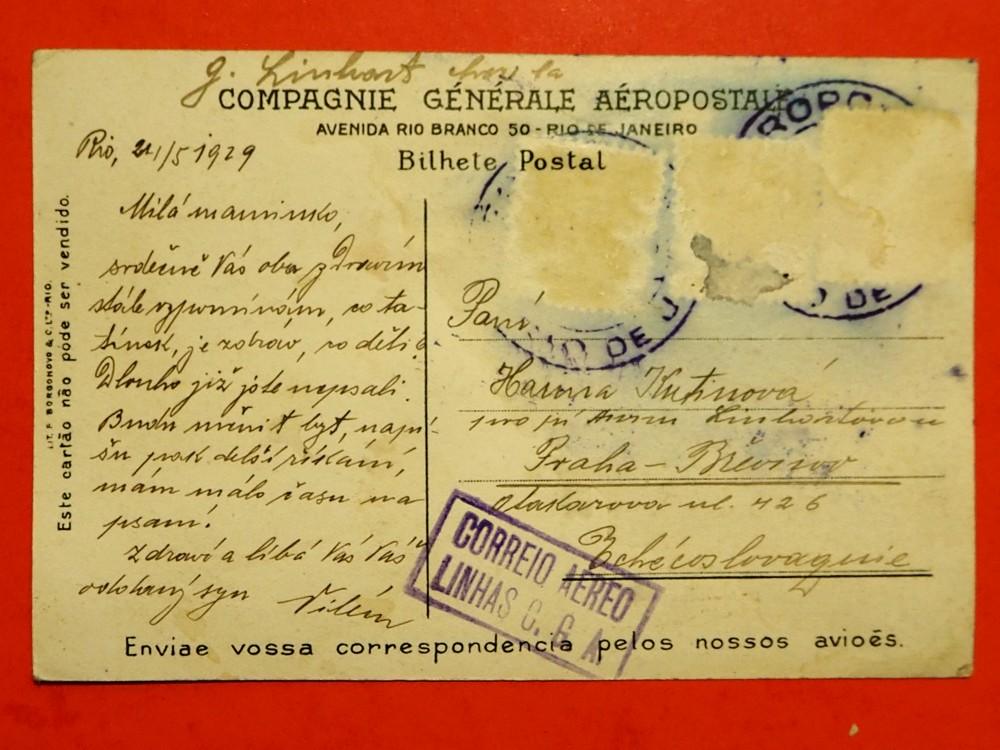 G. Linhart chez la
COMPAGNIE GÉNÉRALE AÉROPOSTALE
AVENIDA RIO BRANCO 50 - RIO DE JANEIRO
Bilhete Postal
Rio, 21/5 1929
Milá maminko,
srdečně Vás oba zdravím
stále vzpomínám, co ta-
tínek, je zdráv, co děti?
Dlouho již jste nepsali.
Budu měnit byt, napí-
šu pak delší psaní,
mám málo času na
psaní.
Zdraví a líbá Vás Váš
oddaný syn Vilém
Este cartão não póde ser vendido.
LIT. F. BORGONOVO & C. LTD - RIO.
Paní
Hanna Kutinová
pro pí Linhartovou
Praha - Břevnov
Otakarova ul. 426
Tchécoslovaquie
RIO DE J
ROPO
O DE
CORREIO AEREO
LINHAS C. G. A.
Enviae vossa correspondencia pelos nossos avioēs.